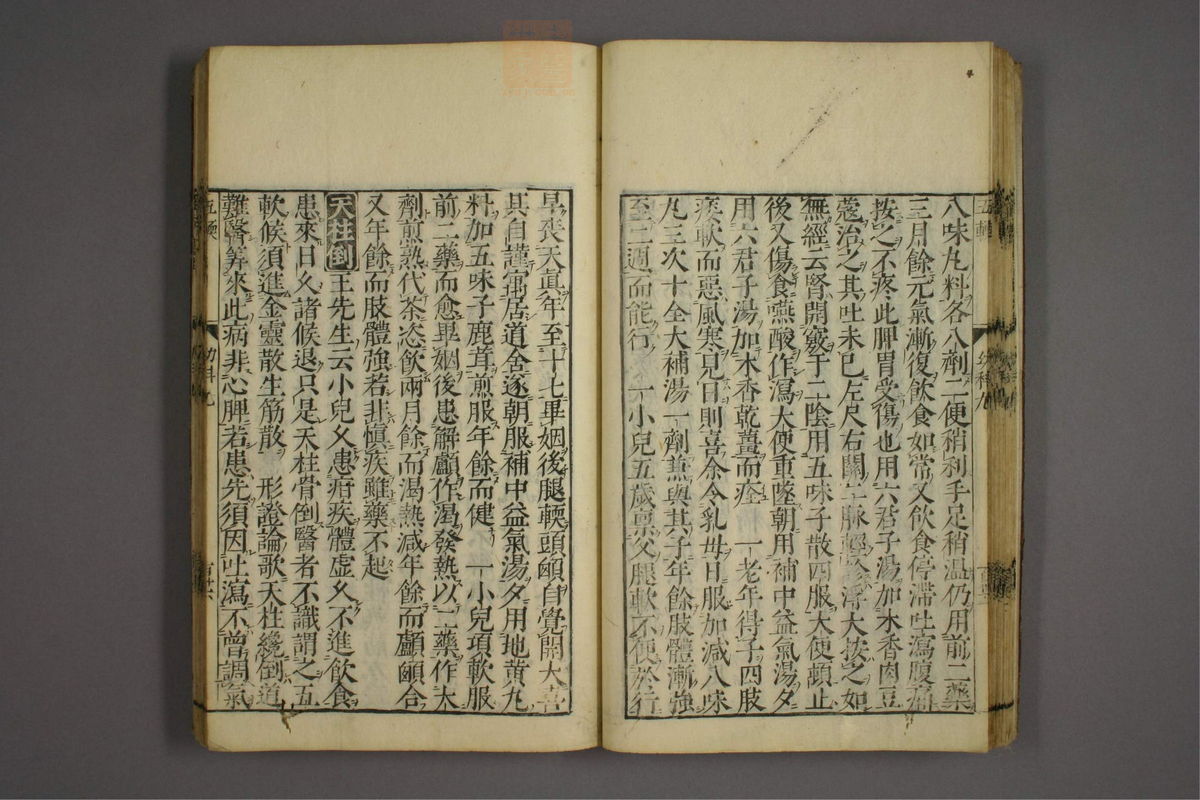 八味丸料各八劑二便稍利手足稍溫仍用前二藥
三月餘元氣漸復飲食如常又飲食停滯吐瀉腹痛
按之不疼此脾胃受傷也用六君子湯加木香肉豆
蔻治之其吐未已左尺右關二脉輕診浮大按之如
無經云腎開竅于二陰用五味子散四服大便頓止
後又傷食嚥酸作瀉大便重墜朝用補中益氣湯夕
用六君子湯加木香乾薑而痊 一老年得子四肢
痿軟而惡風寒見日則喜余令乳母日服加減八味
丸三次十全大補湯一劑兼與其子年餘肢體漸強
至二週而能行 一小兒五歲禀父腿軟不便於行
早喪天眞年至十七畢姻後腿軟頭顱自覺開大喜
其自謹寓居道舍遂朝服補中益氣湯夕用地黄丸
料加五味子鹿茸煎服年餘而健 一小兒項軟服
前二藥而愈畢姻後患解顱作渴發熱以二藥作大
劑煎熟代茶恣飲兩月餘而渴熱減年餘而顱顖合
又年餘而肢體強若非愼疾雖藥不起
天柱倒 王先生云小兒久患疳疾體虛久不進飲食
患來日久諸候退只是天柱骨倒醫者不識謂之五
軟候須進金靈散生筋散 形證論歌天柱纔倒道
難醫筭來此病非心脾若患先須因吐瀉不曾調氣